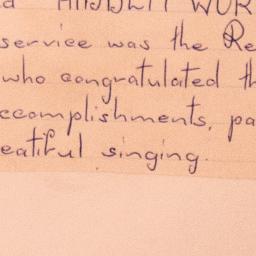 service was the Re
who congratulated th
ccomplishments, pa
eatiful singing.